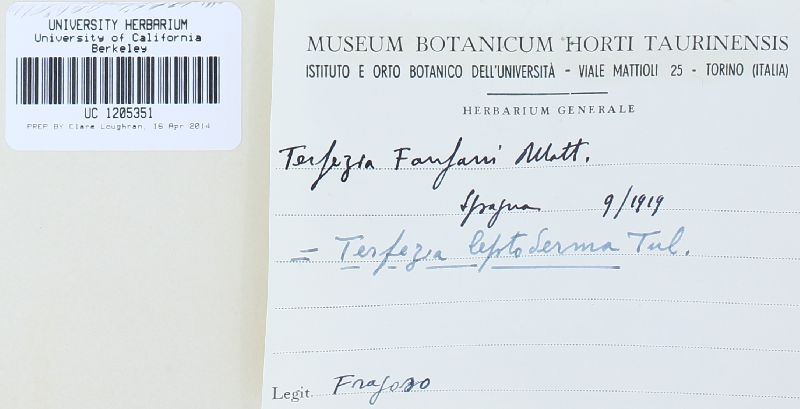 UNIVERSITY HERBARIUM
University of California
Berkeley
UC 1205351
PREP BY Clare Loughran, 16 Apr 2014
MUSEUM BOTANICUM HORTI TAURINENSIS
ISTITUTO E ORTO BOTANICO DELL'UNIVERSITÀ - VIALE MATTIOLI 25 - TORINO (ITALIA)
HERBARIUM GENERALE
Terfezia Fanfani Matt.
Spagna 9/1919
= Terfezia leptoderma Tul.
Legit. Fragoso